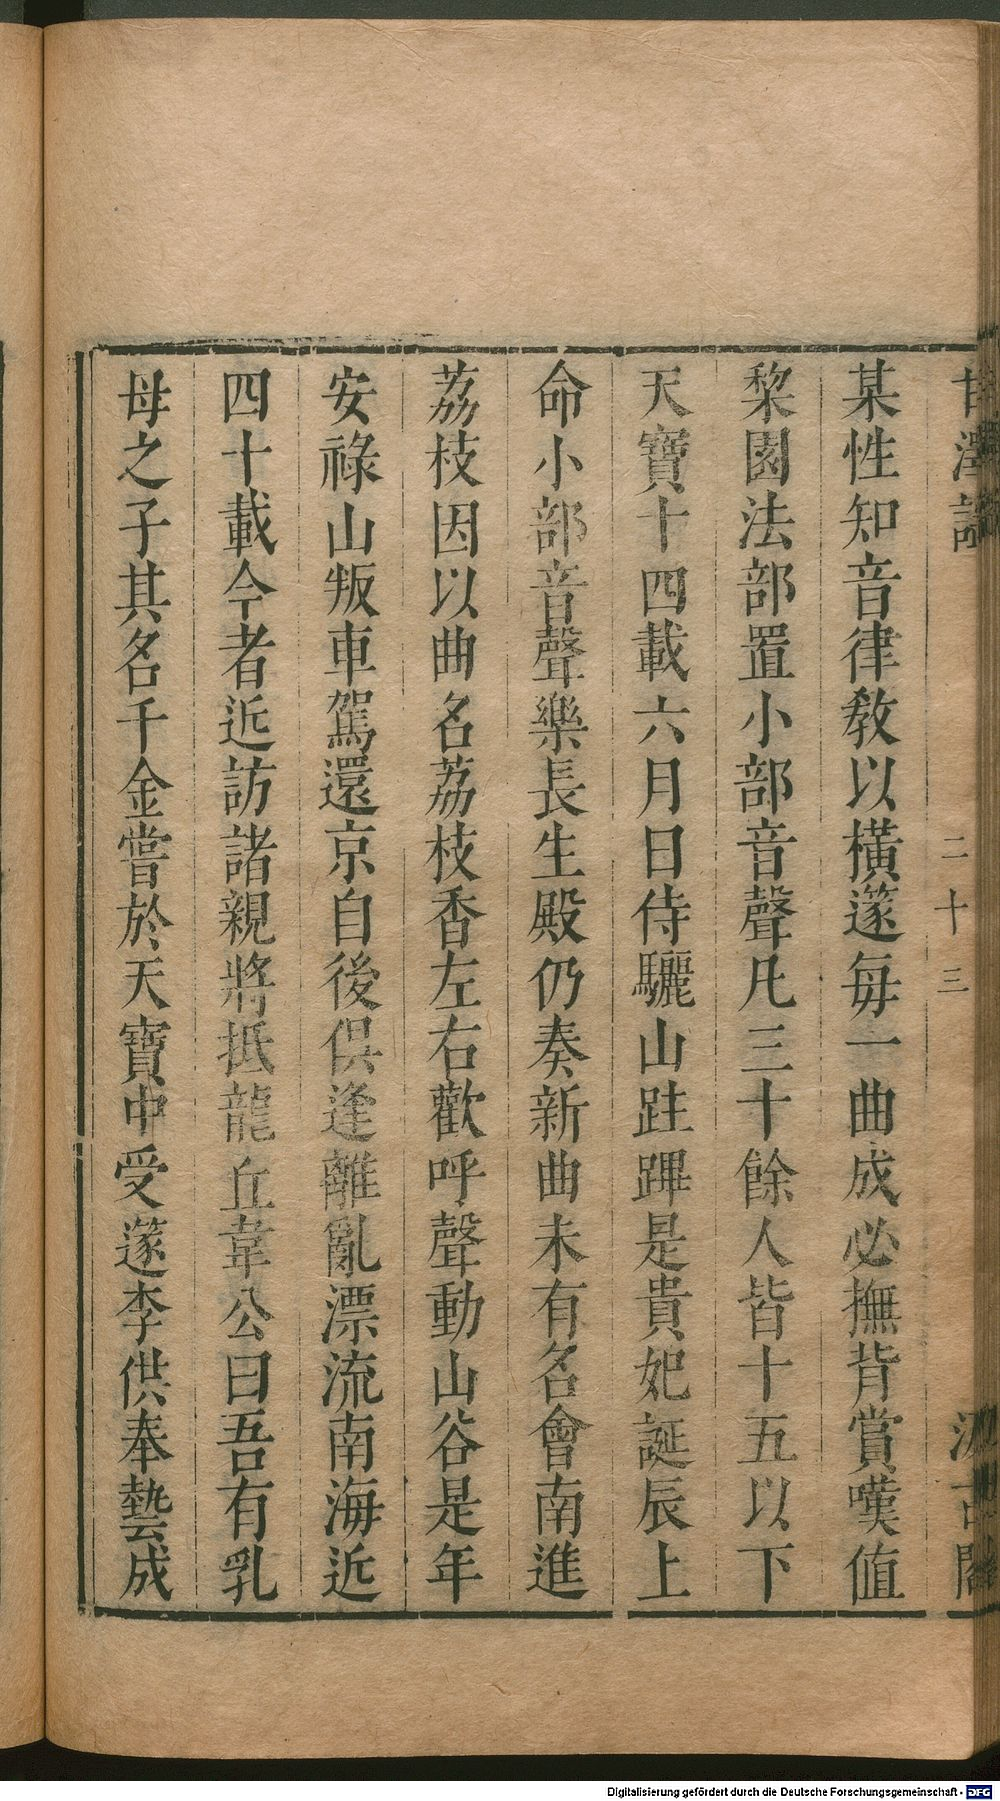 甘澤謠 二十三 汲古閣
某性知音律教以橫篴每一曲成必撫背賞嘆值
棃園法部置小部音聲凡三十餘人皆十五以下
天寶十四載六月日侍驪山跓蹕是貴妃誕辰上
命小部音聲樂長生殿仍奏新曲未有名會南進
荔枝因以曲名荔枝香左右歡呼聲動山谷是年
安祿山叛車駕還京自後俱逢離亂漂流南海近
四十載今者近訪諸親將抵龍丘韋公曰吾有乳
母之子其名千金嘗於天寶中受篴李供奉藝成
Digitalisierung gefördert durch die Deutsche Forschungsgemeinschaft - DFG